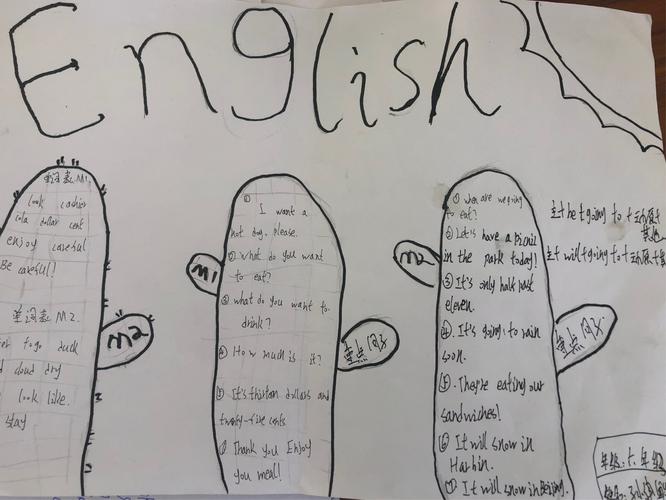 English
单词表 M1.
look cashier
cola dollar cent
enjoy careful
Be careful!
单词表 M2.
to go duck
cloud dry
look like.
stay
M2
M1
①
I want a
hot dog, please.
②What do you want
to eat?
③ what do you want to
drink?
④ How much is it?
⑤ It's thirteen dollars and
twenty-five cents
Thank you Enjoy
you meal!
重点问多.
M2
① when are we going
to eat?
② Let's have a picnic
in the park today!
③ It's only half past
eleven.
④. It's going to rain
soon.
⑤. They're eating our
sandwiches!
⑥ It will snow in
Harbin.
⑦ It will snow in Beijing.
重点
主+be+going to+动原+
其他
主+will+going to+动原+其
年级:六年级